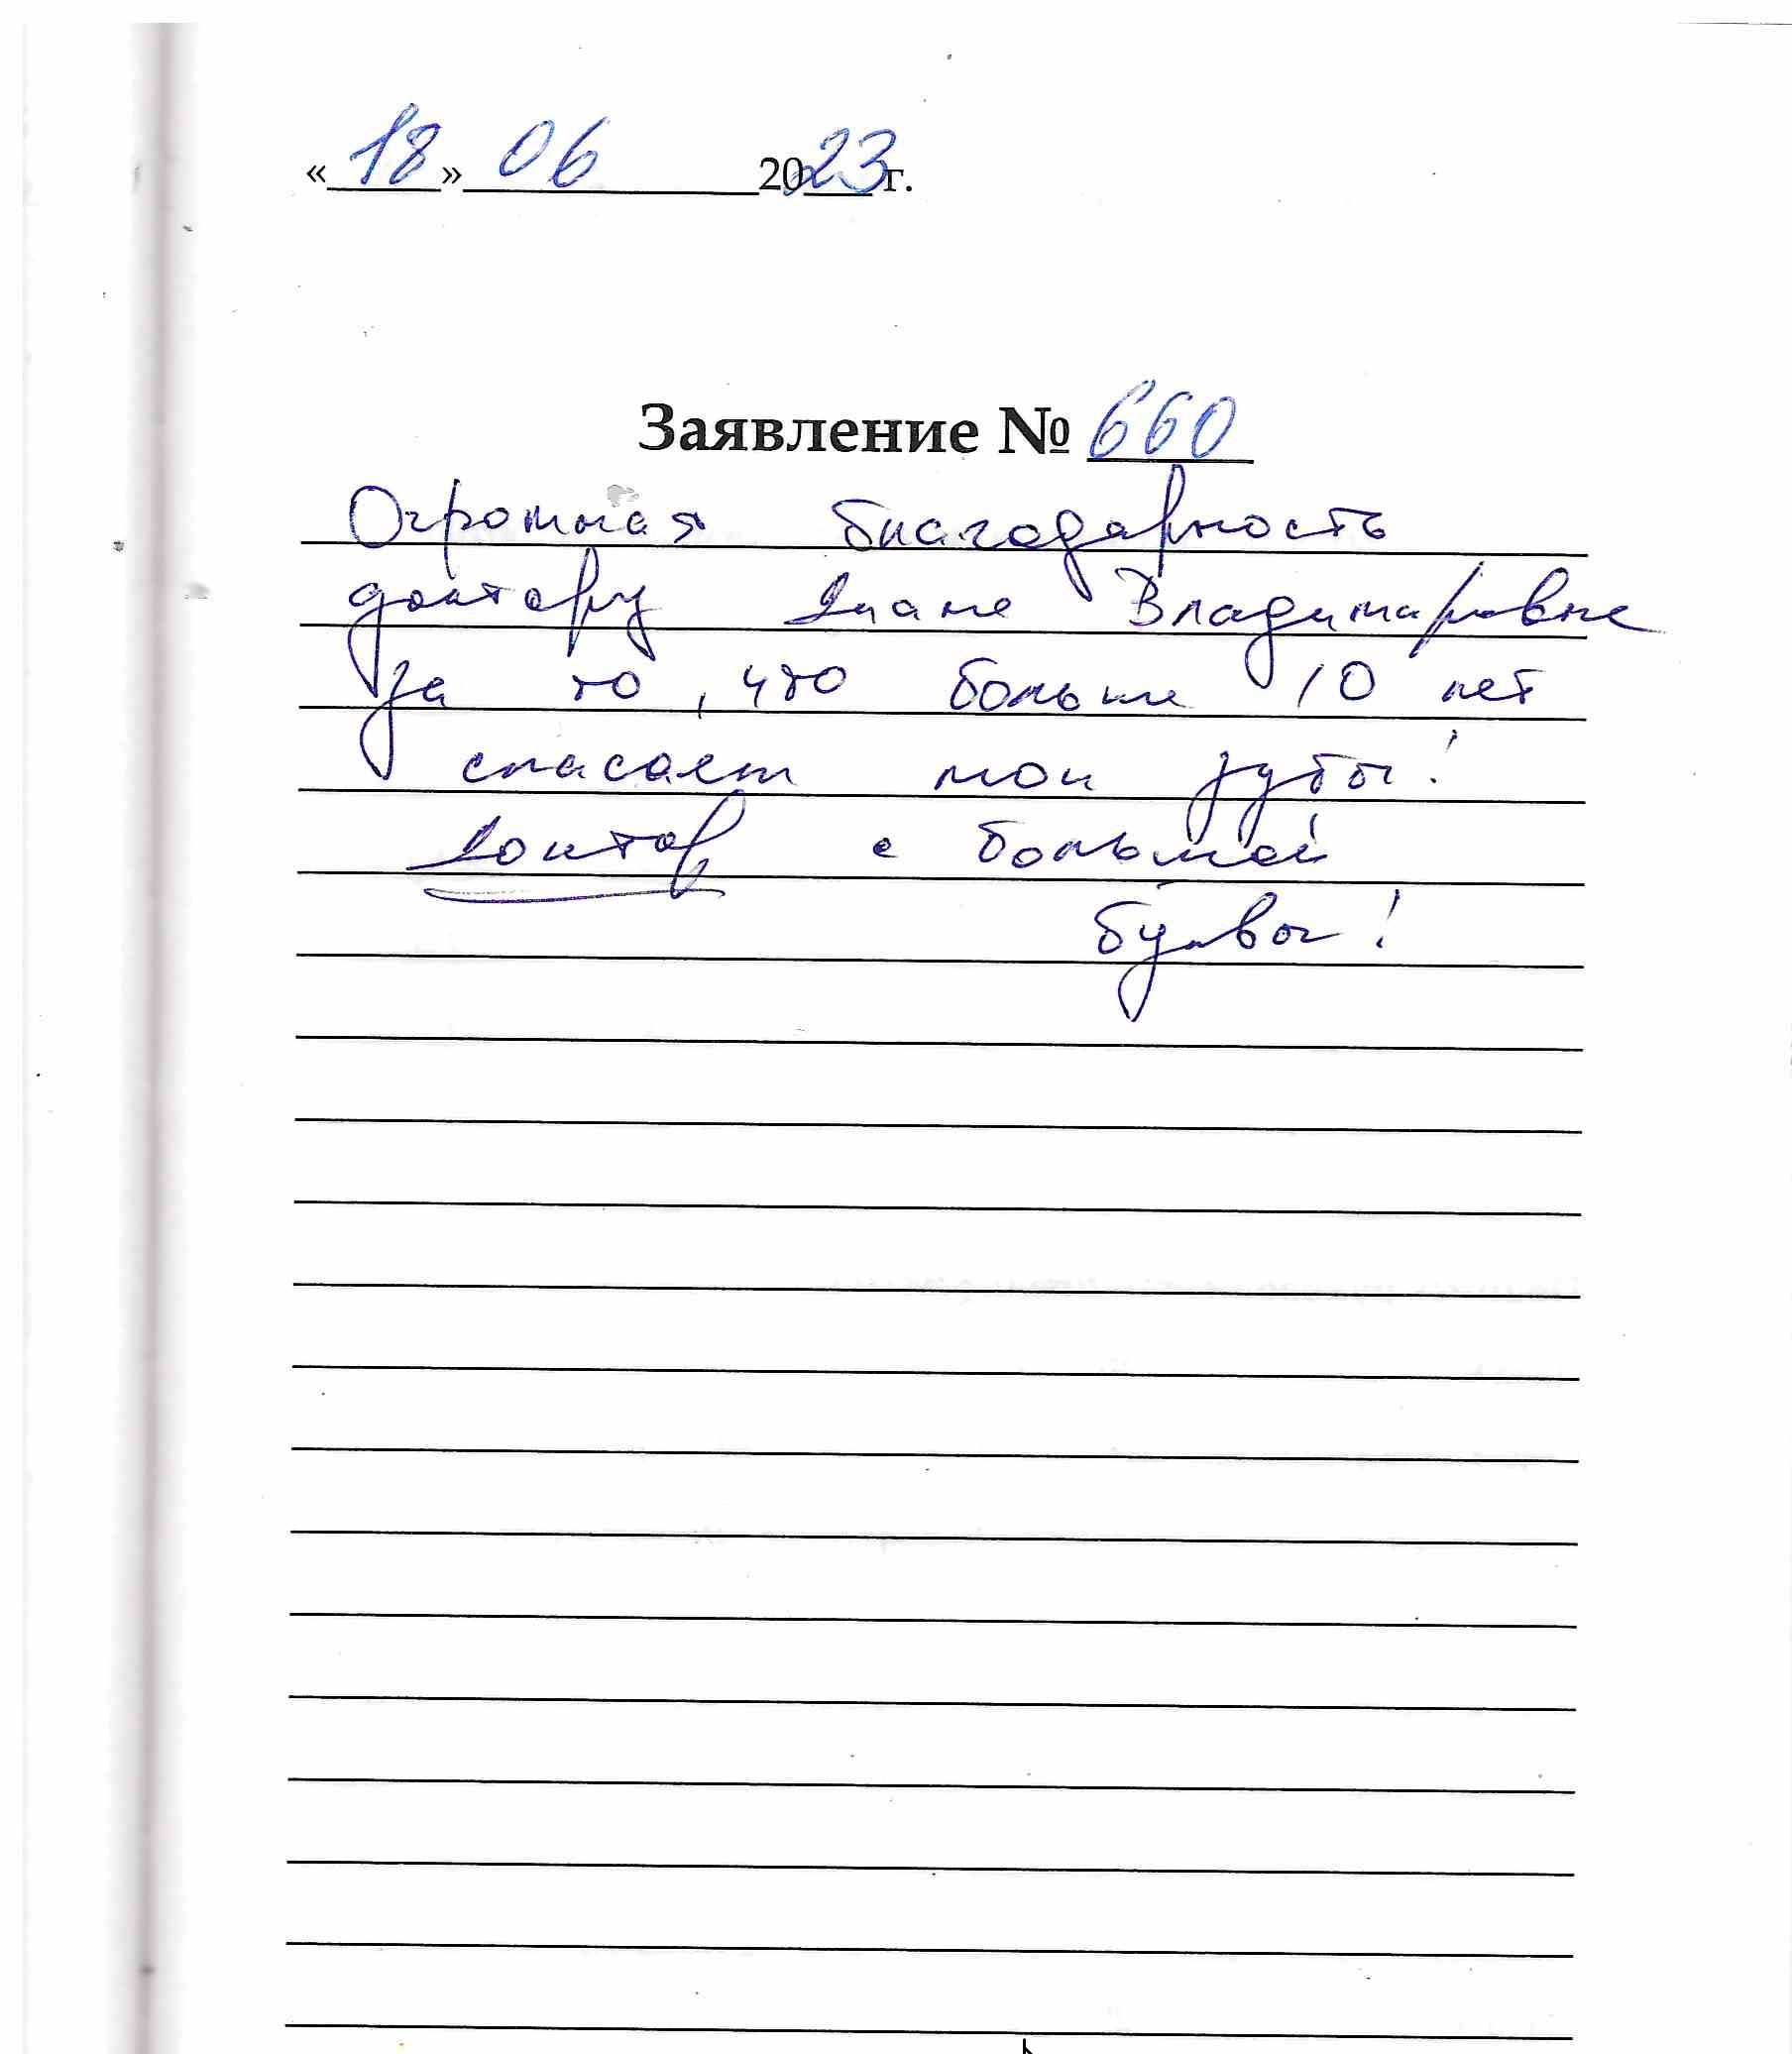 «18» 06 2023 г.
Заявление № 660
Огромная благодарность
доктору Диане Владимировне
за то, что больше 10 лет
спасает мои зубы!
Доктор с большой
буквы!